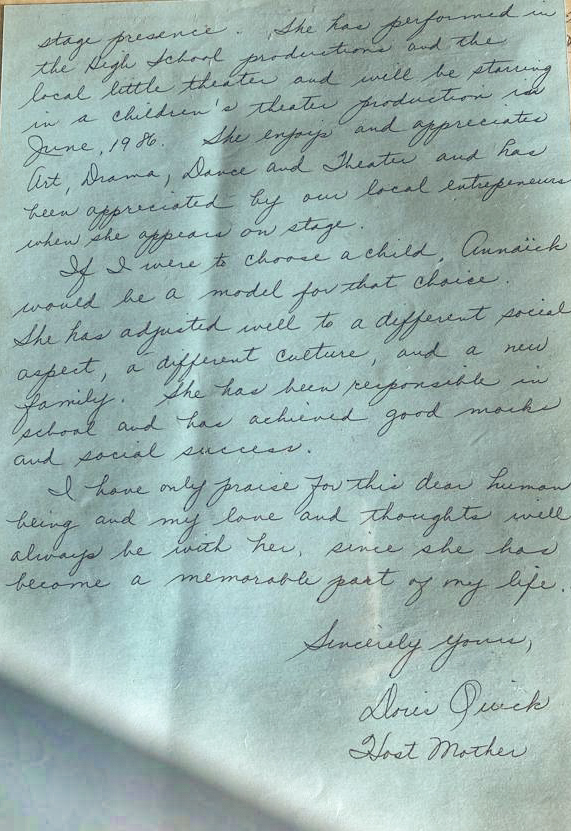 stage presence. She has performed in
the High School productions and the
local little theater and will be starring
in a children's theater production in
June, 1986. She enjoys and appreciates
Art, Drama, Dance and Theater and has
been appreciated by our local entrepeneurs
when she appears on stage.
If I were to choose a child, Annaïck
would be a model for that choice.
She has adjusted well to a different social
aspect, a different culture, and a new
family. She has been responsible in
school and has achieved good marks
and social success.
I have only praise for this dear human
being and my love and thoughts will
always be with her, since she has
become a memorable part of my life.
Sincerely yours,
Doris Quick
Host Mother